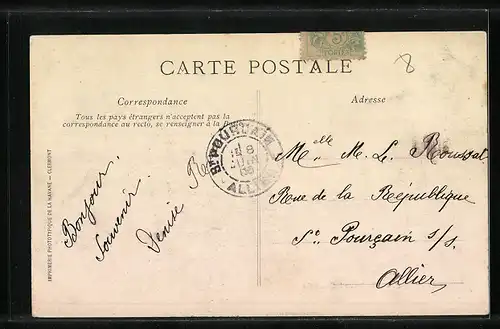 8
CARTE POSTALE
Correspondance
Tous les pays étrangers n'acceptent pas la
correspondance au recto, se renseigner à la
Adresse
Bonjour.
Souvenir.
Denise R
St POURÇAIN
8
JUIN
ALLIER
Melle M. L. Roussat
Rue de la République
St Pourçain s/s.
Allier
IMPRIMERIE PHOTOTYPIQUE DE LA HAVANE - CLERMONT